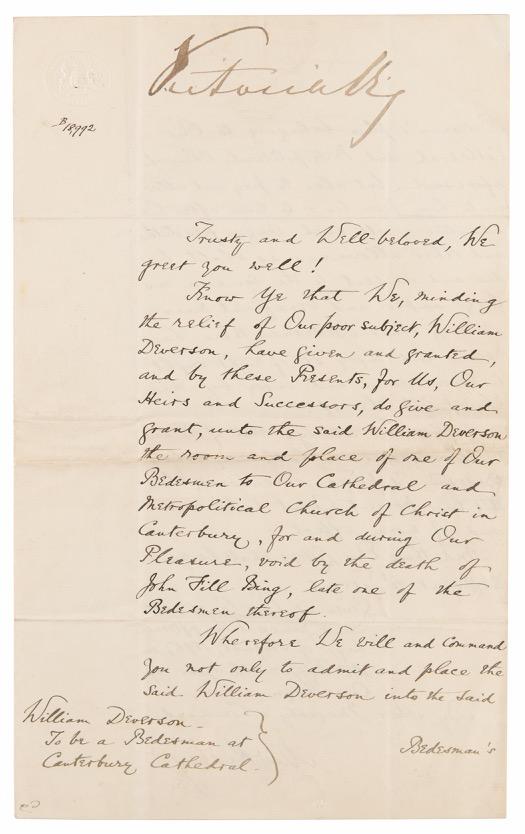 Victoria Rg
B/18,992
Trusty and Well-beloved, We
greet you well!
Know Ye that We, minding
the relief of Our poor subject, William
Deverson, have given and granted,
and by these Presents, for Us, Our
Heirs and Successors, do give and
grant, unto the said William Deverson
the room and place of one of Our
Bedesmen to Our Cathedral and
Metropolitical Church of Christ in
Canterbury, for and during Our
Pleasure, void by the death of
John Fill Bing, late one of the
Bedesmen thereof.
Wherefore We will and command
you not only to admit and place the
said William Deverson into the said
William Deverson_
To be a Bedesman at
Canterbury Cathedral_
Bedesman's